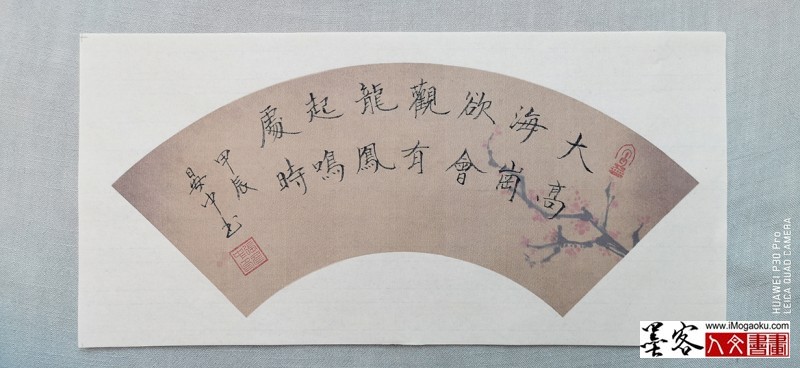 大海欲觀龍起處
高崗會有鳳鳴時
甲辰
晏中书
HUAWEI P30 Pro
LEICA QUAD CAMERA
墨客
www.iMogaoku.com
人文書畫